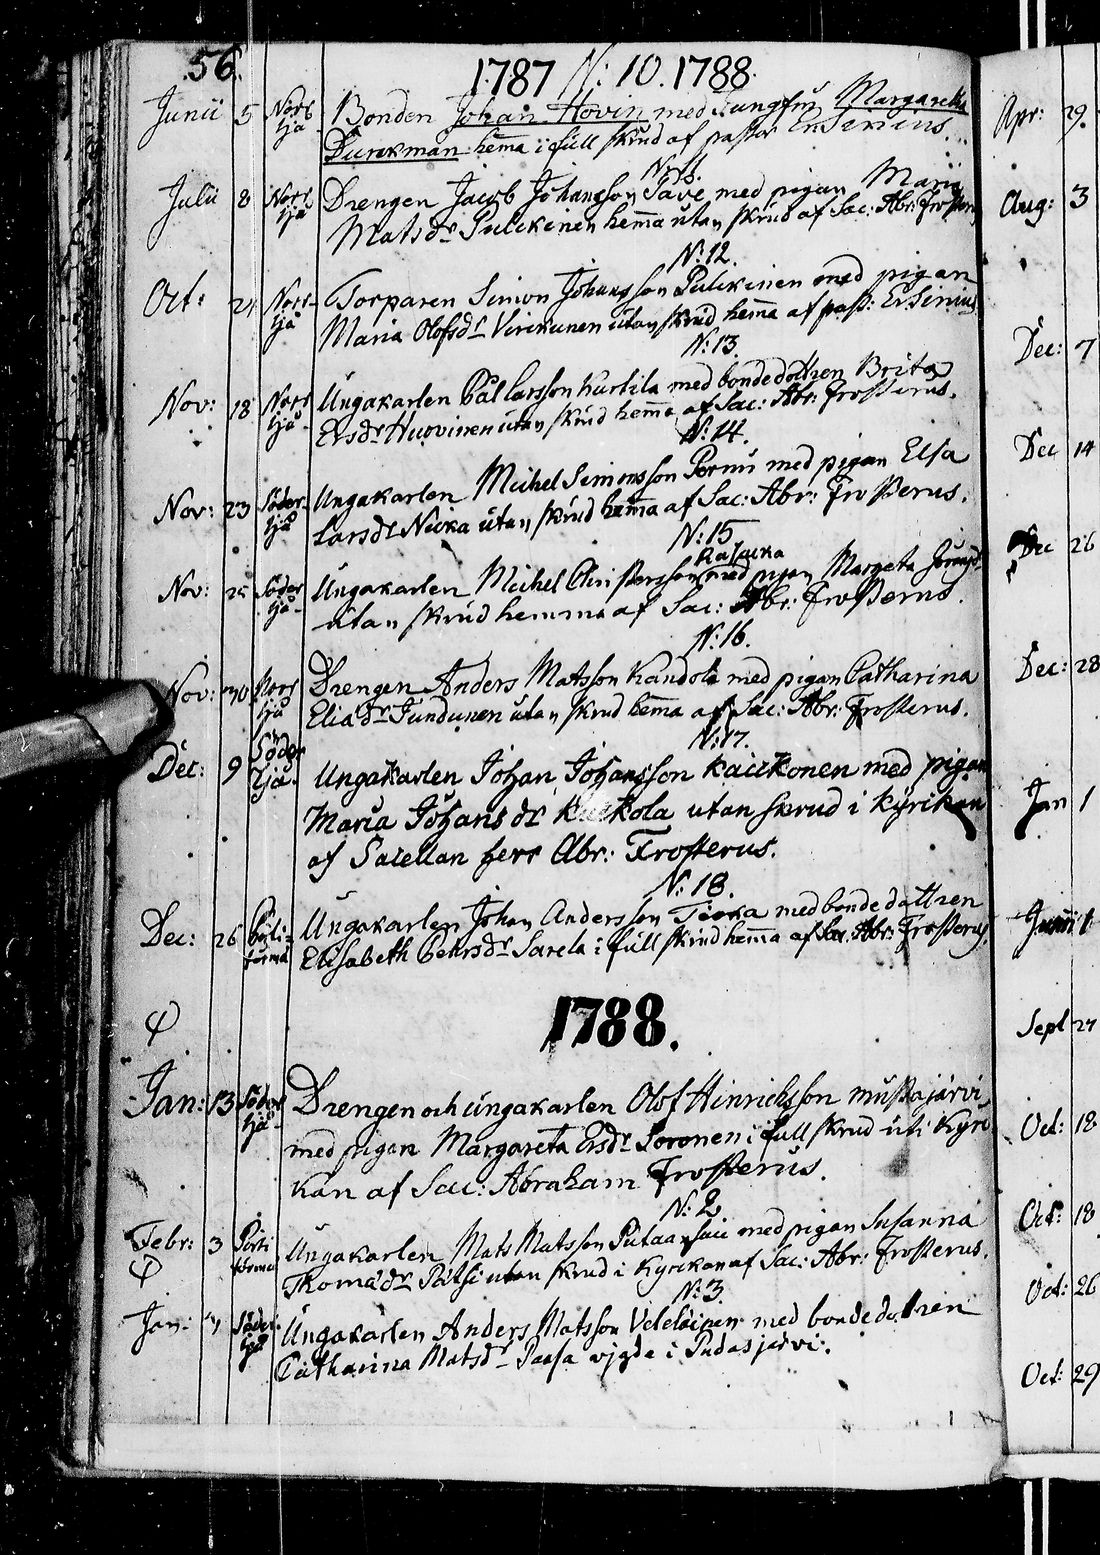 56.
1787 N: 10. 1788.
Junii 5 Norr tjå Bonden Johan Hovin med Jungfru Margaretha
Durckman hema i full skrud af pastor Ersenius.
N: 11.
Julii 8 Norr tjå Drengen Jacob Johansson Save med pigan Maria
Matsdr Pulckinen hema utan skrud af Sac: Abr: Frosterus
N: 12.
Oct: 21 Norr- tjå Torparen Simon Johansson Pulckinen med pigan
Maria Olofsdr Virickunen utan skrud hema af past: Ersenius
N: 13.
Nov: 18 Norr tjå- Ungakarlen Pål Larsson Kurtila med bondedottren Brita
Ersdr Huovinen utan skrud hema af Sac: Abr: Frosterus.
N: 14.
Nov: 23 Söder- tjå Ungakarlen Michel Simonsson Pernu med pigan Elsa
Larsdr Nicka utan skrud hema af Sac: Abr: Frosterus.
N: 15
Nov: 25 Söder tjå- Ungakarlen Michel Christersson med pigan Margeta
utan skrud hemma af Sac: Abr: Frosterus.
N: 16.
Nov: 30 Norr tjå Drengen Anders Matsson Kandola med pigan Catharina
Eliadr Jundunen utan skrud hema af Sac: Abr: Frosterus.
N: 17.
Dec: 9 Söder tjå- Ungakarlen Johan Johansson Kaickonen med pigan
Maria Johansdr utan skrud i kyrikan
af Sacellan herr Abr: Frosterus.
N: 18.
Dec: 26 Ungakarlen Johan Andersson med bondedottren
Elisabeth Pehrsdr Sarela i full skrud hema af Sac. Abr: Frosterus.
1788.
Jan: 13 Söder tjå- Drengen och ungakarlen Olof Hinricksson mustajärvi
med pigan Margareta Ersdr Soronen i full skrud uti Kyri
kan af Sac: Abraham Frosterus.
N: 2
Febr: 3 Ungakarlen Mats Matsson med pigan Susanna
Thomædr Pätsi utan skrud i Kyrckan af Sac: Abr: Frosterus.
N: 3.
Jan: Söder- tjå Ungakarlen Anders Matsson Veteläinen med bondedottren
Catharina Matsdr Paasa vigde i Pudasjärvi.
Apr: 29.
Aug: 3
Dec: 7
Dec 14
Dec 26
Dec: 28
Jan 1
Junii 1
Sept 27
Oct: 18
Oct: 18
Oct: 26
Oct: 29